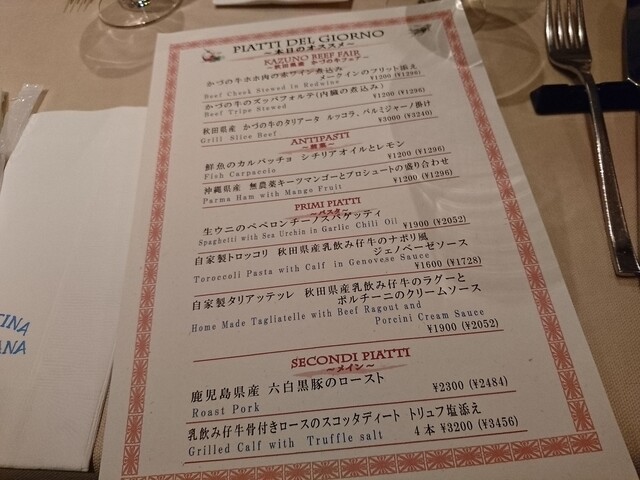 PIATTI DEL GIORNO
～本日のオススメ～
KAZUNO BEEF FAIR
～秋田県産 かづの牛フェアー～
かづの牛ホホ肉の赤ワイン煮込み
メークインのフリット添え
Beef Cheek Stewed in Redwine
¥1200 (¥1296)
かづの牛のズッパフォルテ(内臓の煮込み)
Beef Tripe Stewed
¥1200 (¥1296)
秋田県産 かづの牛のタリアータ ルッコラ、パルミジャーノ掛け
Grill Slice Beef
¥3000 (¥3240)
ANTIPASTI
～前菜～
鮮魚のカルパッチョ シチリアオイルとレモン
Fish Carpaccio
¥1200 (¥1296)
沖縄県産 無農薬キーツマンゴーとプロシュートの盛り合わせ
Parma Ham with Mango Fruit
¥1200 (¥1296)
PRIMI PIATTI
～パスタ～
生ウニのペペロンチーノスパゲッティ
Spaghetti with Sea Urchin in Garlic Chili Oil
¥1900 (¥2052)
自家製トロッコリ 秋田県産乳飲み仔牛のナポリ風
ジェノベーゼソース
Toroccoli Pasta with Calf in Genovese Sauce
¥1600 (¥1728)
自家製タリアッテッレ 秋田県産乳飲み仔牛のラグーと
ポルチーニのクリームソース
Home Made Tagliatelle with Beef Ragout and
Porcini Cream Sauce
¥1900 (¥2052)
SECONDI PIATTI
～メイン～
鹿児島県産 六白黒豚のロースト
Roast Pork
¥2300 (¥2484)
乳飲み仔牛骨付きロースのスコッタディート トリュフ塩添え
Grilled Calf with Truffle salt
4本 ¥3200 (¥3456)